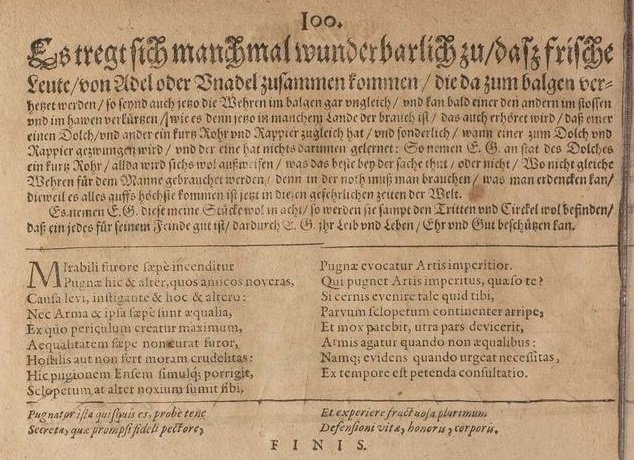 100.
Es tregt sich manchmal wunderbarlich zu / dasz frische
Leute / von Adel oder Vnadel zusammen kommen / die da zum balgen ver-
hetzet werden / so seynd auch jetzo die Wehren im balgen gar vngleich / vnd kan bald einer den andern im stossen
vnd im hawen verkürtzen / wie es denn jetzo in manchem Lande der brauch ist / das auch erhöret wird / daß einer
einen Dolch / vnd ander ein kurtz Rohr vnd Rappier zugleich hat / vnd sonderlich / wann einer zum Dolch vnd
Rappier gezwungen wird / vnd der eine hat nichts darinnen gelernet: So nemen E. G. an stat des Dolches
ein kurtz Rohr / allda wird sichs wol außweisen / was das beste bey der sache thut / oder nicht / Wo nicht gleiche
Wehren für dem Manne gebrauchet werden / denn in der noth muß man brauchen / was man erdencken kan /
dieweil es alles auffs höchste kommen ist jetzt in diesen gefehrlichen zeiten der Welt.
Es nemen E. G. diese meine Stücke wol in acht / so werden sie sampt den Tritten vnd Circkel wol befinden /
daß ein jedes für seinem Feinde gut ist / dardurch E. G. jhr Leib vnd Leben / Ehr vnd Gut beschützen kan.
MIrabili furore sæpè incenditur
Pugnæ hic & alter, quos amicos noveras,
Causa levi, instigante & hoc & altero:
Nec Arma & ipsa sæpè sunt æqualia,
Ex quio periculum creatur maximum,
Aequalitatem sæpe non curat furor,
Hostilis aut non fert moram crudelitas:
Hic pugionem Ensem simulq; porrigit,
Sclopetum at alter noxium sumit sibi,
Pugnæ evocatur Artis imperitior.
Qui pugnet Artis imperitus, quæso te?
Si cernis evenire tale quid tibi,
Parvum sclopetum continenter arripe,
Et mox patebit, utra pars devicerit,
Armis agatur quando non æqualibus:
Namq; evidens quando urgeat necessitas,
Ex tempore est petenda consultatio.
Pugnator ista quisquis es, probe tene
Secreta, quæ prompsi fideli pectore,
Et experiere fructuosa plurimum
Defensioni vitæ, honoris, corporis.
FINIS.